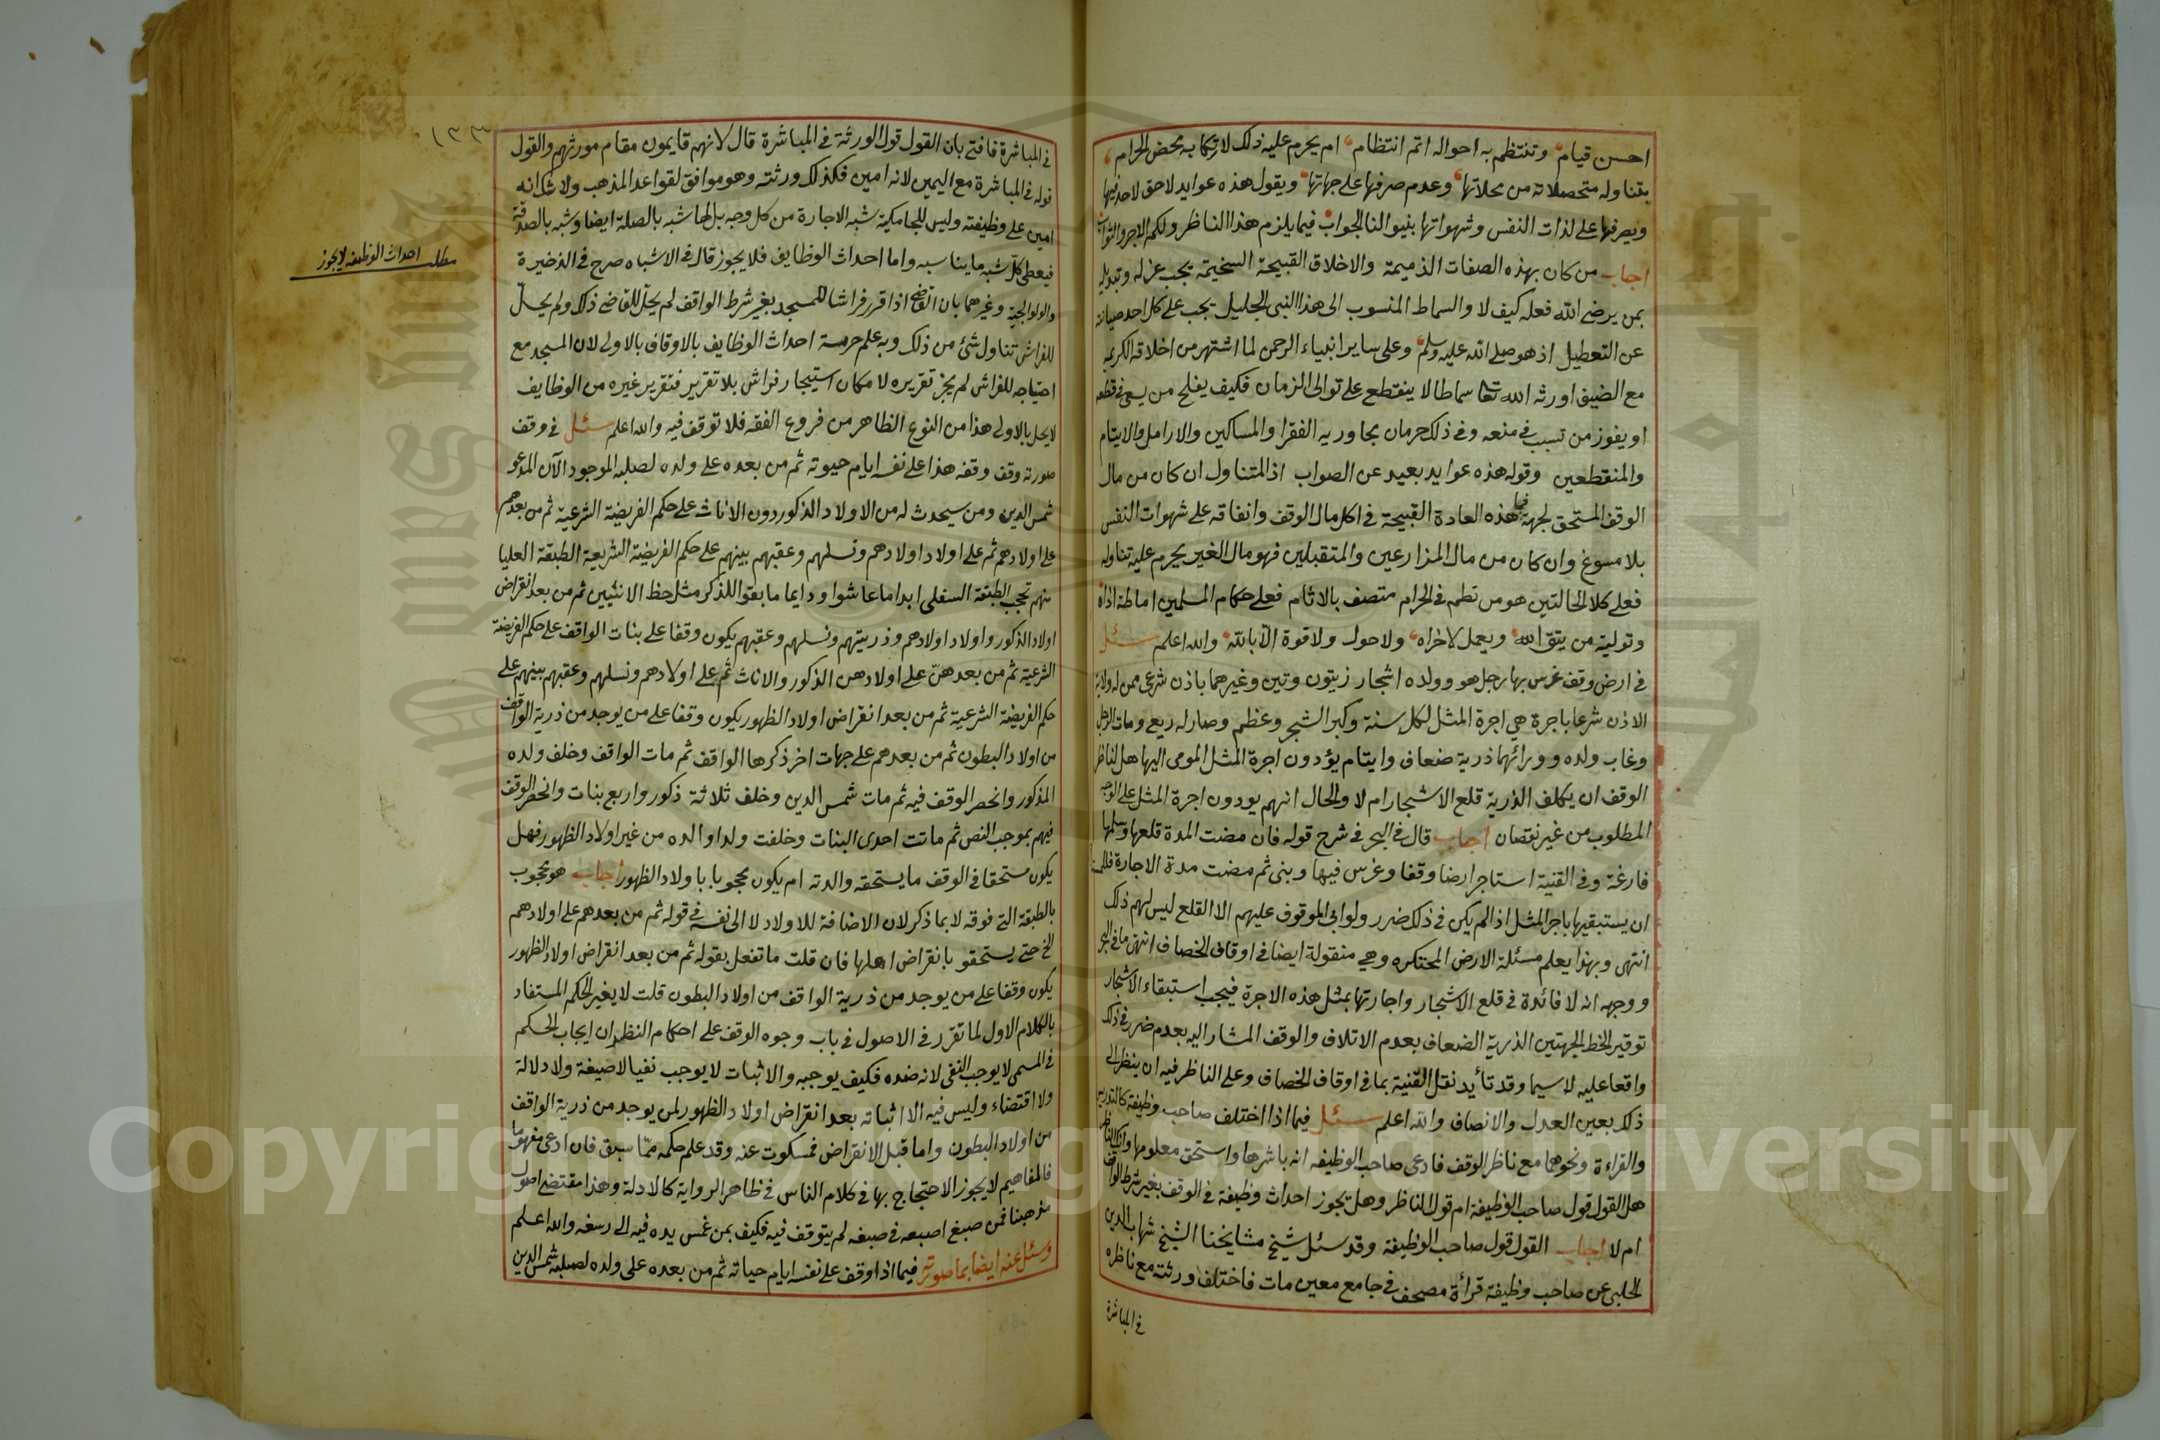 احسن قيام وتنتظم به احواله اتم انتظام ام يحرم عليه ذلك لارتكابه محض الحرام
بتناوله متحصلاته من محلاتها وعدم صرفها على جهاتها ويقول هذه عوايد لاحق لاحد فيها
ويصرفها على لذات النفس وشهواتها بينوا لنا الجواب فيما يلزم هذا الناظر ولكم الاجر والثواب
اجاب من كان بهذه الصفات الذميمة والاخلاق القبيحة السخيمة يجب عزله وتبديله
بمن يرضى الله فعله كيف لا والسماط المنسوب الى هذا النبى الجليل يجب على كل احد صيانته
عن التعطيل اذ هو صلى الله عليه وسلم وعلى ساير انبياء الرحمن لما اشتهر من اخلاقه الكريمه
مع الضيف اورثه الله تعا سماطا لا ينقطع على توالى الزمان فكيف يفلح من يسعى فى قطعه
او يفوز من تسبب فى منعه وفى ذلك حرمان مجاوريه الفقرا والمساكين والارامل والايتام
والمنقطعين وقوله هذه عوايد بعيد عن الصواب اذ المتناول ان كان من مال
الوقف المستحق لجهة فما هذه العادة القبيحة فى اكل مال الوقف وانفاقه على شهوات النفس
بلا مسوغ وان كان من مال المزارعين والمتقبلين فهو مال الغير يحرم عليه تناوله
فعلى كلا الحالتين هو من تطم فى الحرام متصف بالاثام فعلى حكام المسلمين اماطة اذاه
وتولية من يتق الله ويعمل لاخراه ولا حول ولا قوة الا بالله والله اعلم سئل
فى ارض وقف غرس بها رجل هو وولده اشجار زيتون وتين وغيرهما باذن شرعى ممن له ولاية
الاذن شرعا باجرة هي اجرة المثل لكل سنة وكبر الشجر وعظم وصار له ريع ومات الرجل
وغاب ولده وورائهما ذرية ضعاف وايتام يؤدون اجرة المثل المومى اليها هل لناظر
الوقف ان يكلف الذرية قلع الاشجار ام لا والحال انهم يودون اجرة المثل على الوجه
المطلوب من غير نقصان اجاب قال فى البحر فى شرح قوله فان مضت المدة قلعها وسلمها
فارغة وفى القنية استاجر ارضا وقفا وغرس فيها وبنى ثم مضت مدة الاجارة فللمستاجر
ان يستبقيها باجر المثل اذا لم يكن فى ذلك ضرر ولو ابى الموقوف عليهم الا القلع ليس لهم ذلك
انتهى وبهذا يعلم مسئلة الارض المحتكره وهي منقولة ايضا فى اوقاف الخصاف انتهى ما فى البحر
ووجهه انه لا فائدة فى قلع الاشجار واجارتها بمثل هذه الاجرة فيجب استبقاء الاشجار
توقير الخط الجهتين الذرية الضعاف بعدم الاتلاف والوقف المشار اليه بعدم ضرر فى ذلك
واقعا عليه لاسيما وقد تأيد نقل القنية بما فى اوقاف الخصاف وعلى الناظر فيه ان ينظر الى
ذلك بعين العدل والانصاف والله اعلم سئل فيما اذا اختلف صاحب وظيفة كالتدريس
والقراءة ونحوهما مع ناظر الوقف فادعى صاحب الوظيفه انه باشرها واستحق معلومها وانكر الناظر
هل القول قول صاحب الوظيفة ام قول الناظر وهل تجوز احداث وظيفة فى الوقف بغير شرط الواقف
ام لا اجاب القول قول صاحب الوظيفة وقد سئل شيخ مشايخنا الشيخ شهاب الدين
الحلبى عن صاحب وظيفة قرأة مصحف فى جامع معين مات فاختلف ورثته مع ناظره
فى المباشرة
١٣٣
فى المباشرة فافتى بان القول قول الورثة فى المباشرة قال لانهم قايمون مقام مورثهم والقول
قوله فى المباشرة مع اليمين لانه امين فكذلك ورثته وهو موافق لقواعد المذهب ولا شك انه
امين على وظيفته وليس للجامكية شبه الاجارة من كل وجه بل لها شبه بالصلة ايضا وشبه بالصدقة
فيعطى كل شبه ما يناسبه واما احداث الوظايف فلا يجوز قال فى الاشباه صرح فى الذخيرة
والولوالجية وغيرهما بان القاضى اذا قرر فراشا للمسجد بغير شرط الواقف لم يحل للقاضى ذلك ولم يحل
للفراش تناول شئ من ذلك وبه علم حرمة احداث الوظايف بالاوقاف بالاولى لان المسجد مع
احتياجه للفراش لم يجز تقريره لامكان استيجار فراش بلا تقرير فتقرير غيره من الوظايف
لا يحل بالاولى هذا من النوع الظاهر من فروع الفقه فلا توقف فيه والله اعلم سئل فى وقف
صورته وقف وقفه هذا على نفسه ايام حيوته ثم من بعده على ولده لصلبه الموجود الآن المدعو
شمس الدين ومن سيحدث له من الاولاد الذكور دون الاناث على حكم الفريضة الشرعية ثم من بعدهم
على اولادهم ثم على اولاد اولادهم ونسلهم وعقبهم بينهم على حكم الفريضة الشرعية الطبقة العليا
منهم تحجب الطبقة السفلى ابدا ما عاشوا ودايما ما بقوا للذكر مثل حظ الانثيين ثم من بعد انقراض
اولاد الذكور واولاد اولادهم وذريتهم ونسلهم وعقبهم يكون وقفا على بنات الواقف على حكم الفريضة
الشرعية ثم من بعدهن على اولادهن الذكور والاناث ثم على اولادهم ونسلهم وعقبهم بينهم على
حكم الفريضة الشرعية ثم من بعد انقراض اولاد الظهور يكون وقفا على من يوجد من ذرية الواقف
من اولاد البطون ثم من بعدهم على جهات اخر ذكرها الواقف ثم مات الواقف وخلف ولده
المذكور وانحصر الوقف فيه ثم مات شمس الدين وخلف ثلاثة ذكور واربع بنات وانحصر الوقف
فيهم بموجب النص ثم ماتت احدى البنات وخلفت ولدا والده من غير اولاد الظهور فهل
يكون مستحقا فى الوقف ما يستحقه والدته ام يكون محجوبا باولاد الظهور اجاب هو محجوب
بالطبقة التى فوقه لا بما ذكر لان الاضافة للاولاد لا الى نفسه فى قوله ثم من بعدهم على اولادهم
الخ حتى يستحقو بانقراض اهلها فان قلت ما تفعل بقوله ثم من بعد انقراض اولاد الظهور
يكون وقفا على من يوجد من ذرية الواقف من اولاد البطون قلت لا يغير الحكم المستفاد
بالكلام الاول لما تقرر فى الاصول فى باب وجوه الوقف على احكام النظر ان ايجاب الحكم
فى المسمى لا يوجب النفى لانه ضده فكيف يوجبه والاثبات لا يوجب نفيا لا صيغة ولا دلالة
ولا اقتضاء وليس فيه الا اثباته بعد انقراض اولاد الظهور لمن يوجد من ذرية الواقف
من اولاد البطون واما قبل الانقراض فمسكوت عنه وقد علم حكمه مما سبق فان ادعى مفهوما
فالمفاهيم لا يجوز الاحتجاج بها فى كلام الناس فى ظاهر الرواية كالادلة وهذا مقتضى اصول
مذهبنا فمن صبغ اصبعه فى صبغه لم يتوقف فيه فكيف بمن غمس يده فيه الى رسغه والله اعلم
وسئل عنه ايضا بما صورته فيما اذا وقف على نفسه ايام حياته ثم من بعده على ولده لصلبه شمس الدين
مطلب احداث الوظيفه لايجوز
Copyright © King Saud University